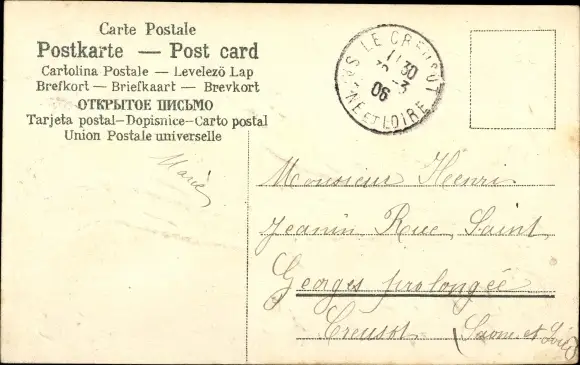 Carte Postale
Postkarte — Post card
Cartolina Postale — Levelező Lap
Brefkort — Briefkaart — Brevkort
ОТКРЫТОЕ ПИСЬМО
Tarjeta postal—Dopisnice—Carto postal
Union Postale universelle
LE CREUSOT
11 30
3
06
ET LOIRE
Marie
Monsieur Henri
Jeanin Rue Saint
Georges prolongée
Creusot (Saone et Loire)